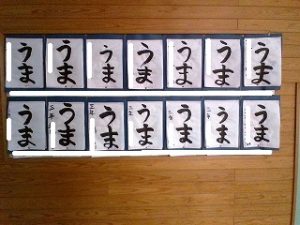 うま
うま
うま
うま
うま
うま
うま
うま
うま
うま
うま
うま
うま
うま